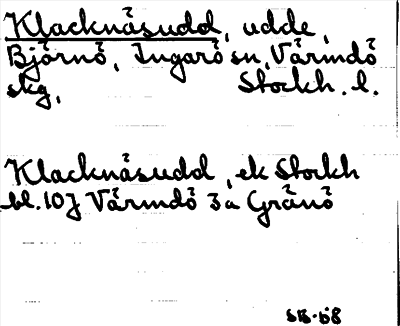 Klacknäsudd, udde,
Björnö, Ingarö sn, Värmdö
skg, Stockh. l.
Klacknäsudd, ek Stockh
bl. 107 Värmdö 3a Grönö
SB-58